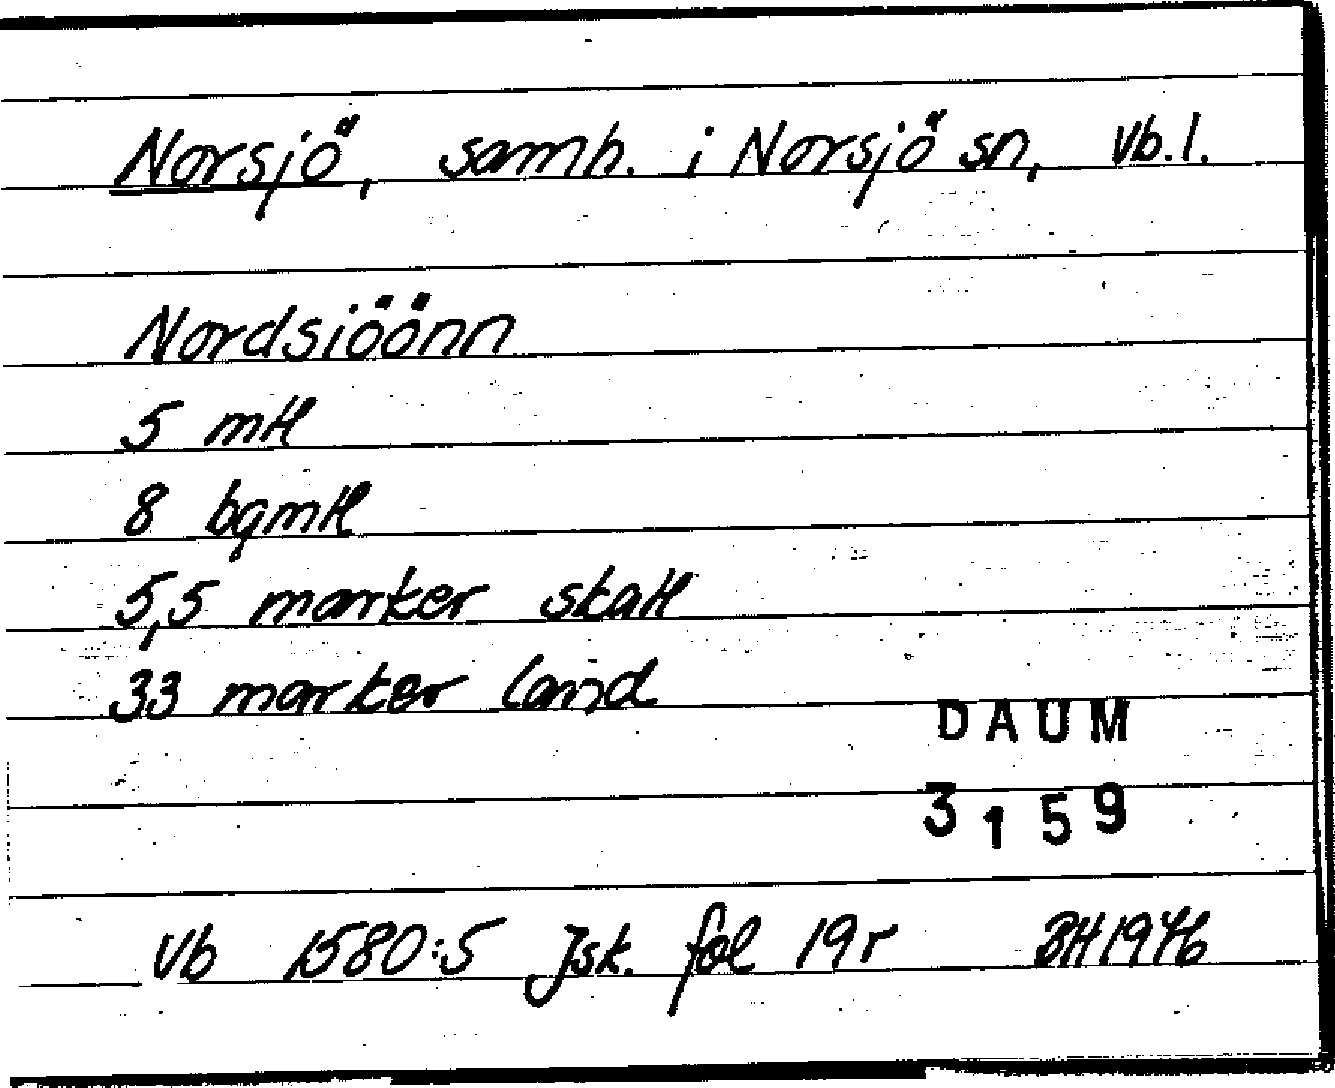 Norsjö, samh. i Norsjö sn, Vb.l.
Nordsiöönn
5 mtl
8 bgmtl
5,5 marker skatt
33 marker land
DAUM
3159
Vb 1580:5 Jsk. fol 19r BH1976